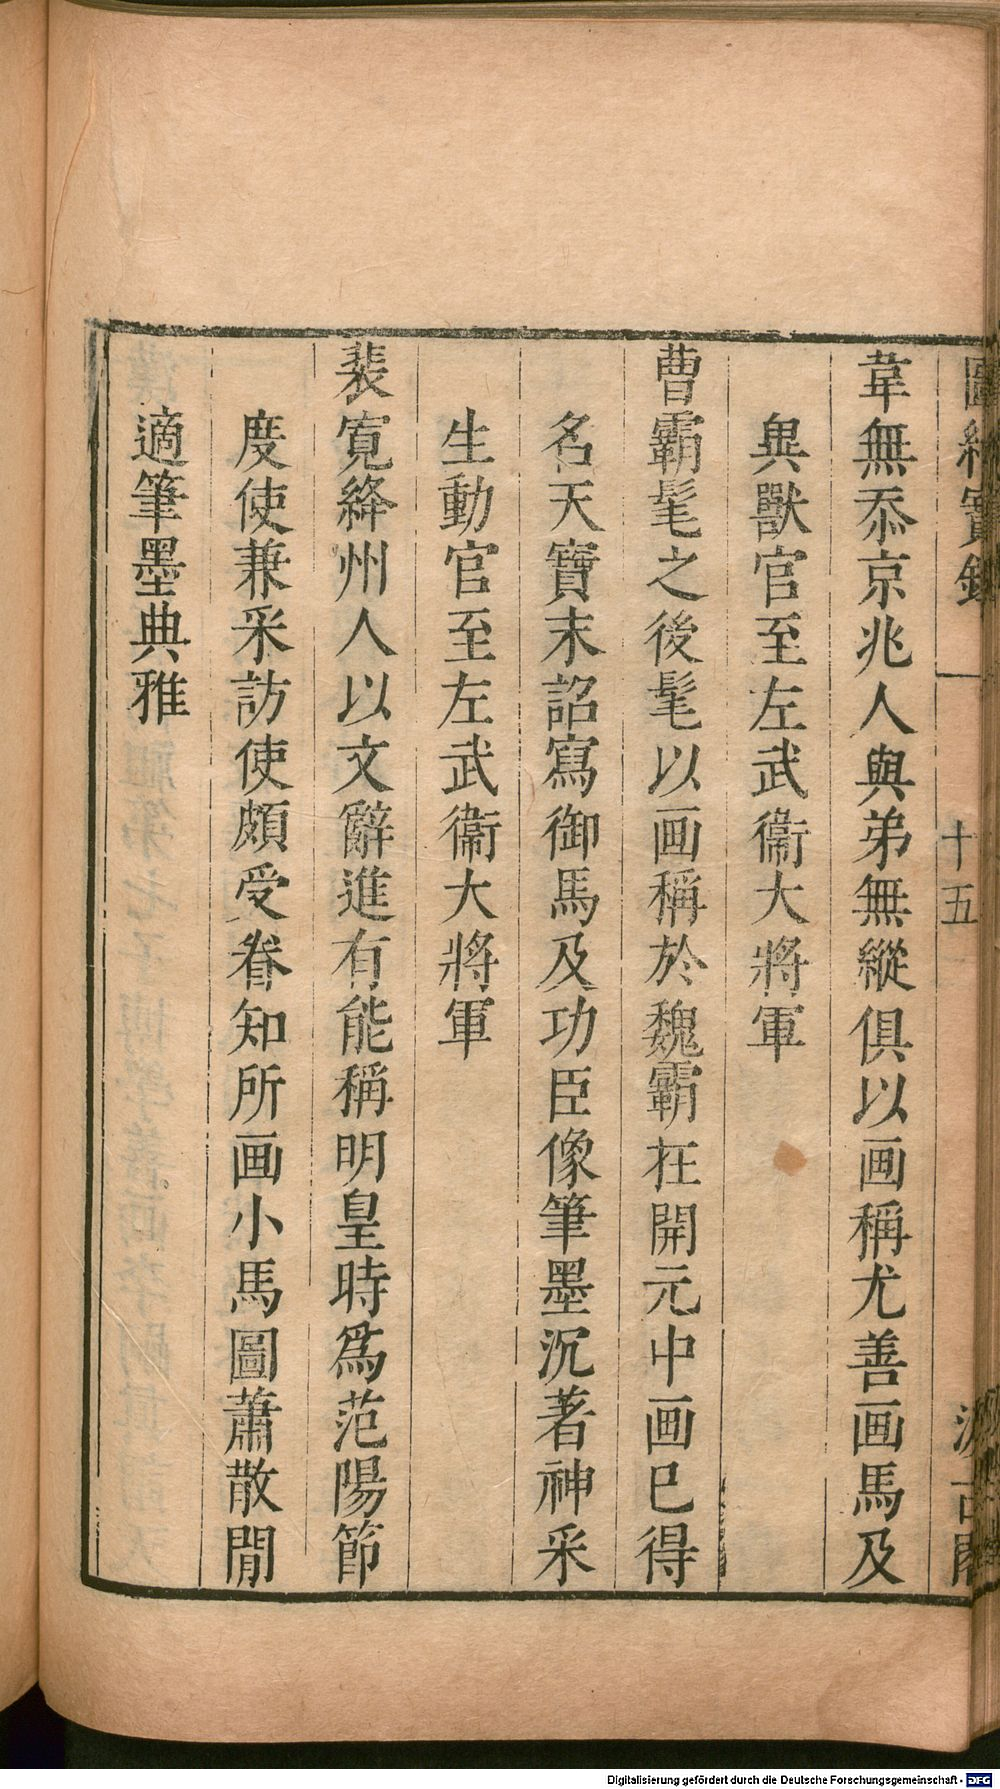 圖繪寶鑑
十五
汲古閣
韋無忝京兆人與弟無縱俱以画稱尤善画馬及
異獸官至左武衞大將軍
曹霸髦之後髦以画稱於魏霸在開元中画已得
名天寶末詔寫御馬及功臣像筆墨沉著神采
生動官至左武衞大將軍
裴寬絳州人以文辭進有能稱明皇時爲范陽節
度使兼采訪使頗受眷知所画小馬圖蕭散閒
適筆墨典雅
Digitalisierung gefördert durch die Deutsche Forschungsgemeinschaft - DFG